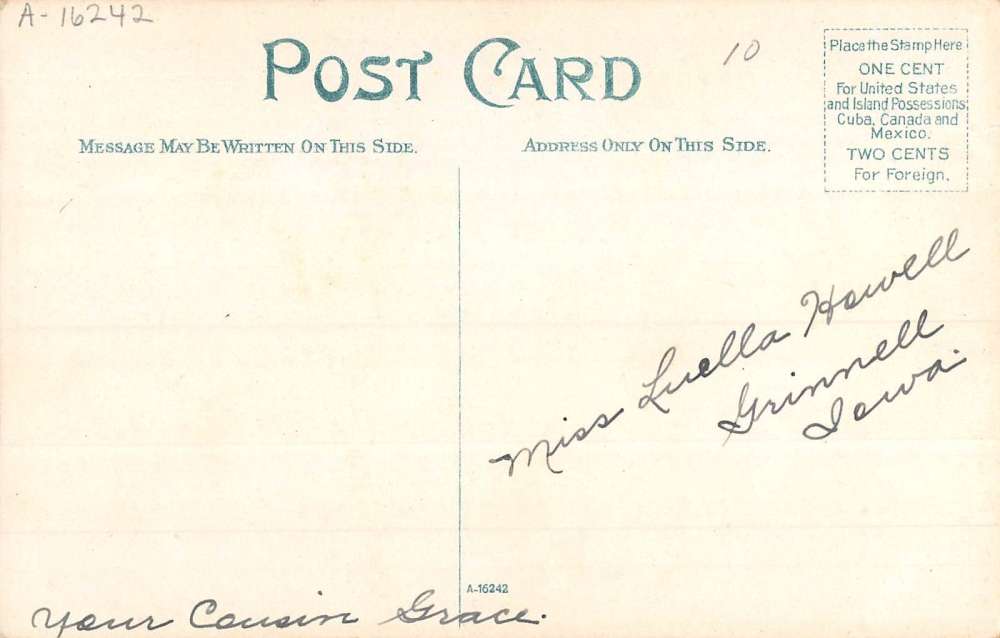 A-16242
POST CARD
10
Place the Stamp Here
ONE CENT
For United States
and Island Possessions,
Cuba, Canada and
Mexico.
TWO CENTS
For Foreign.
MESSAGE MAY BE WRITTEN ON THIS SIDE.
ADDRESS ONLY ON THIS SIDE.
Miss Luella Howell
Grinnell
Iowa.
A-16242
Your Cousin Grace.